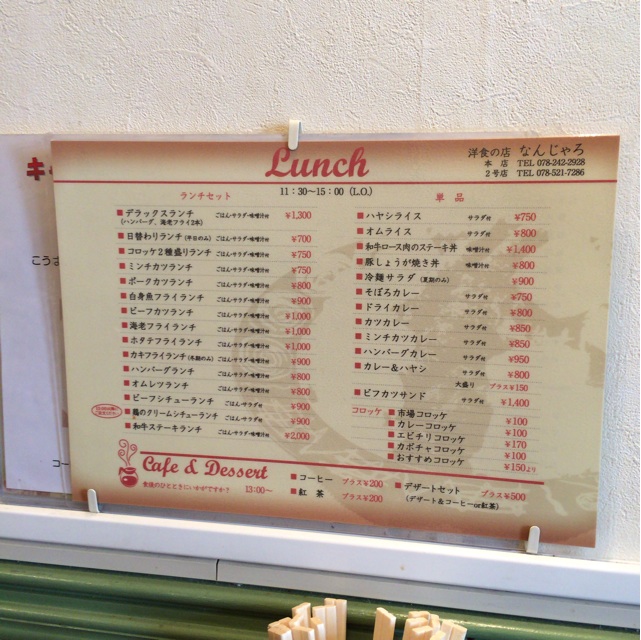 Lunch
洋食の店 なんじゃろ
本 店 TEL 078-242-2928
2号店 TEL 078-521-7586
11:30~15:00 (L.O.)
ランチセット
デラックスランチ ごはん・サラダ・味噌汁付 ¥1,300
(ハンバーグ、海老フライ2本)
日替わりランチ (平日のみ) ごはん・サラダ・味噌汁付 ¥700
コロッケ2種盛りランチ ごはん・サラダ・味噌汁付 ¥750
ミンチカツランチ ごはん・サラダ・味噌汁付 ¥750
ポークカツランチ ごはん・サラダ・味噌汁付 ¥800
白身魚フライランチ ごはん・サラダ・味噌汁付 ¥900
ビーフカツランチ ごはん・サラダ・味噌汁付 ¥1,000
海老フライランチ ごはん・サラダ・味噌汁付 ¥1,000
ホタテフライランチ ごはん・サラダ・味噌汁付 ¥1,000
カキフライランチ (冬期のみ) ごはん・サラダ・味噌汁付 ¥900
ハンバーグランチ ごはん・サラダ・味噌汁付 ¥800
オムレツランチ ごはん・サラダ・味噌汁付 ¥800
ビーフシチューランチ ごはん・サラダ付 ¥900
鶏のクリームシチューランチ ごはん・サラダ付 ¥900
和牛ステーキランチ ごはん・サラダ・味噌汁付 ¥2,000
単 品
ハヤシライス サラダ付 ¥750
オムライス サラダ付 ¥800
和牛ロース肉のステーキ丼 味噌汁付 ¥1,400
豚しょうが焼き丼 味噌汁付 ¥800
冷麺サラダ (夏期のみ) ¥900
そぼろカレー サラダ付 ¥750
ドライカレー サラダ付 ¥800
カツカレー サラダ付 ¥850
ミンチカツカレー サラダ付 ¥850
ハンバーグカレー サラダ付 ¥950
カレー&ハヤシ サラダ付 ¥800
大盛り プラス¥150
ビフカツサンド サラダ付 ¥1,400
コロッケ 市場コロッケ ¥100
カレーコロッケ ¥100
エビチリコロッケ ¥170
カボチャコロッケ ¥100
おすすめコロッケ ¥150より
Cafe & Dessert
食後のひとときにいかがですか? 13:00~
コーヒー プラス¥200
紅 茶 プラス¥200
デザートセット プラス¥500
(デザート&コーヒーor紅茶)
キ
こうよ
コー